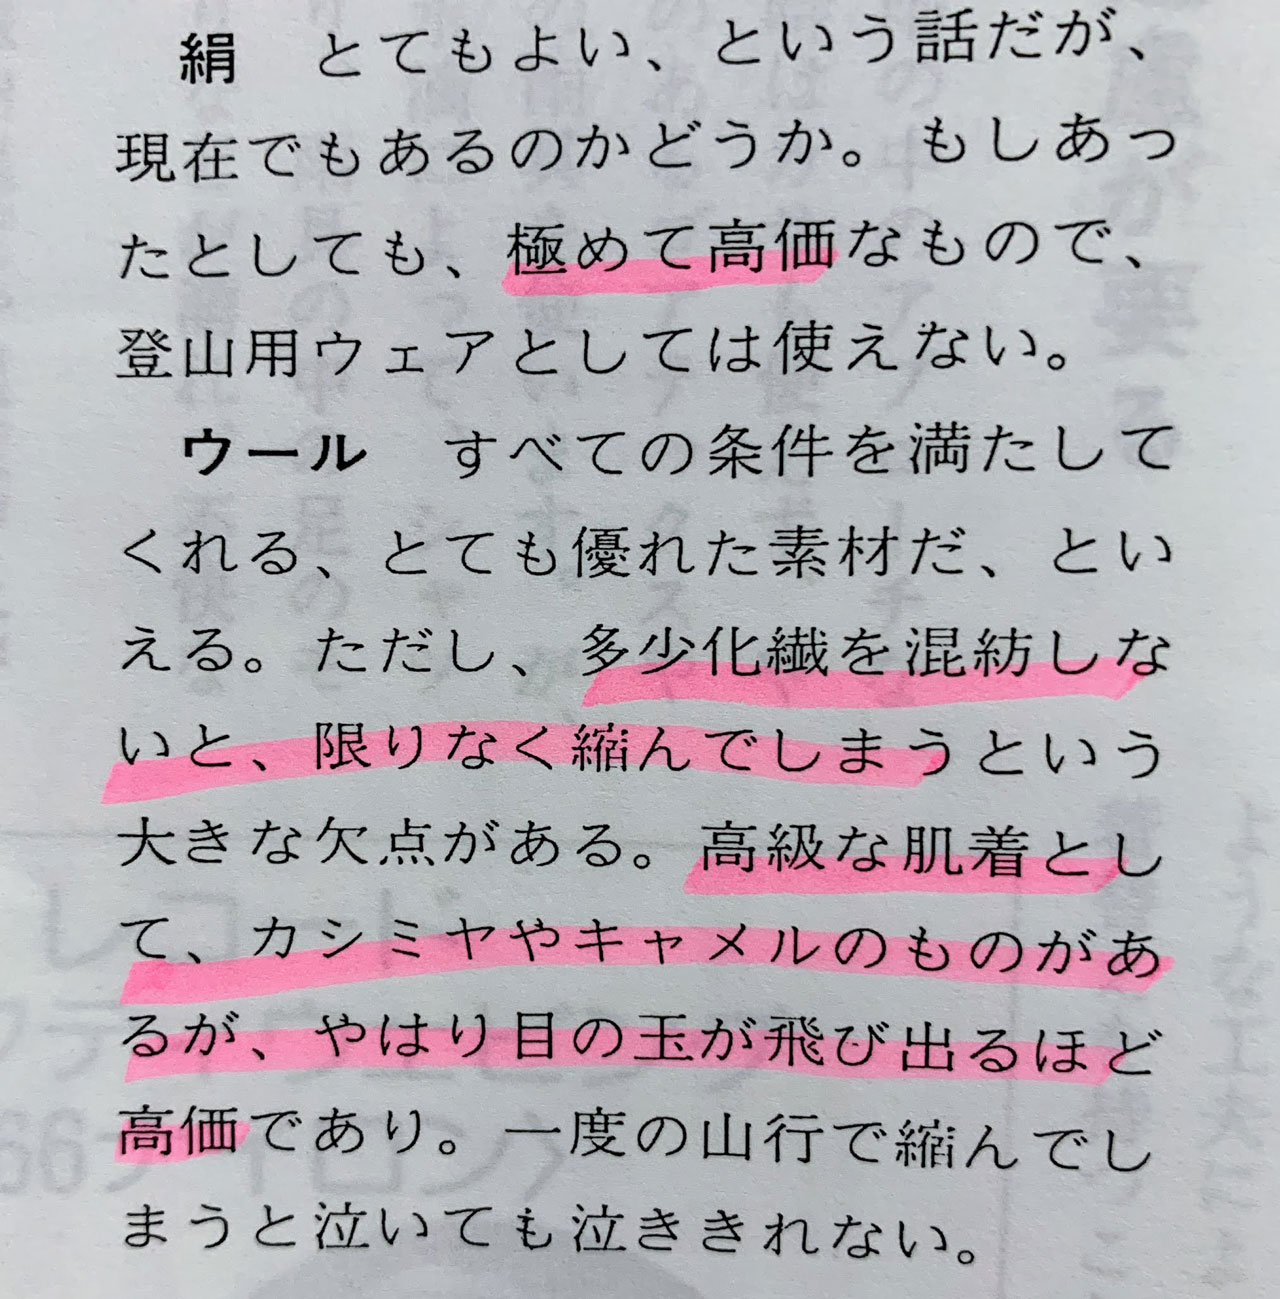 絹　とてもよい、という話だが、
現在でもあるのかどうか。もしあっ
たとしても、極めて高価なもので、
登山用ウェアとしては使えない。
ウール　すべての条件を満たして
くれる、とても優れた素材だ、とい
える。ただし、多少化繊を混紡しな
いと、限りなく縮んでしまうという
大きな欠点がある。高級な肌着とし
て、カシミヤやキャメルのものがあ
るが、やはり目の玉が飛び出るほど
高価であり。一度の山行で縮んでし
まうと泣いても泣ききれない。